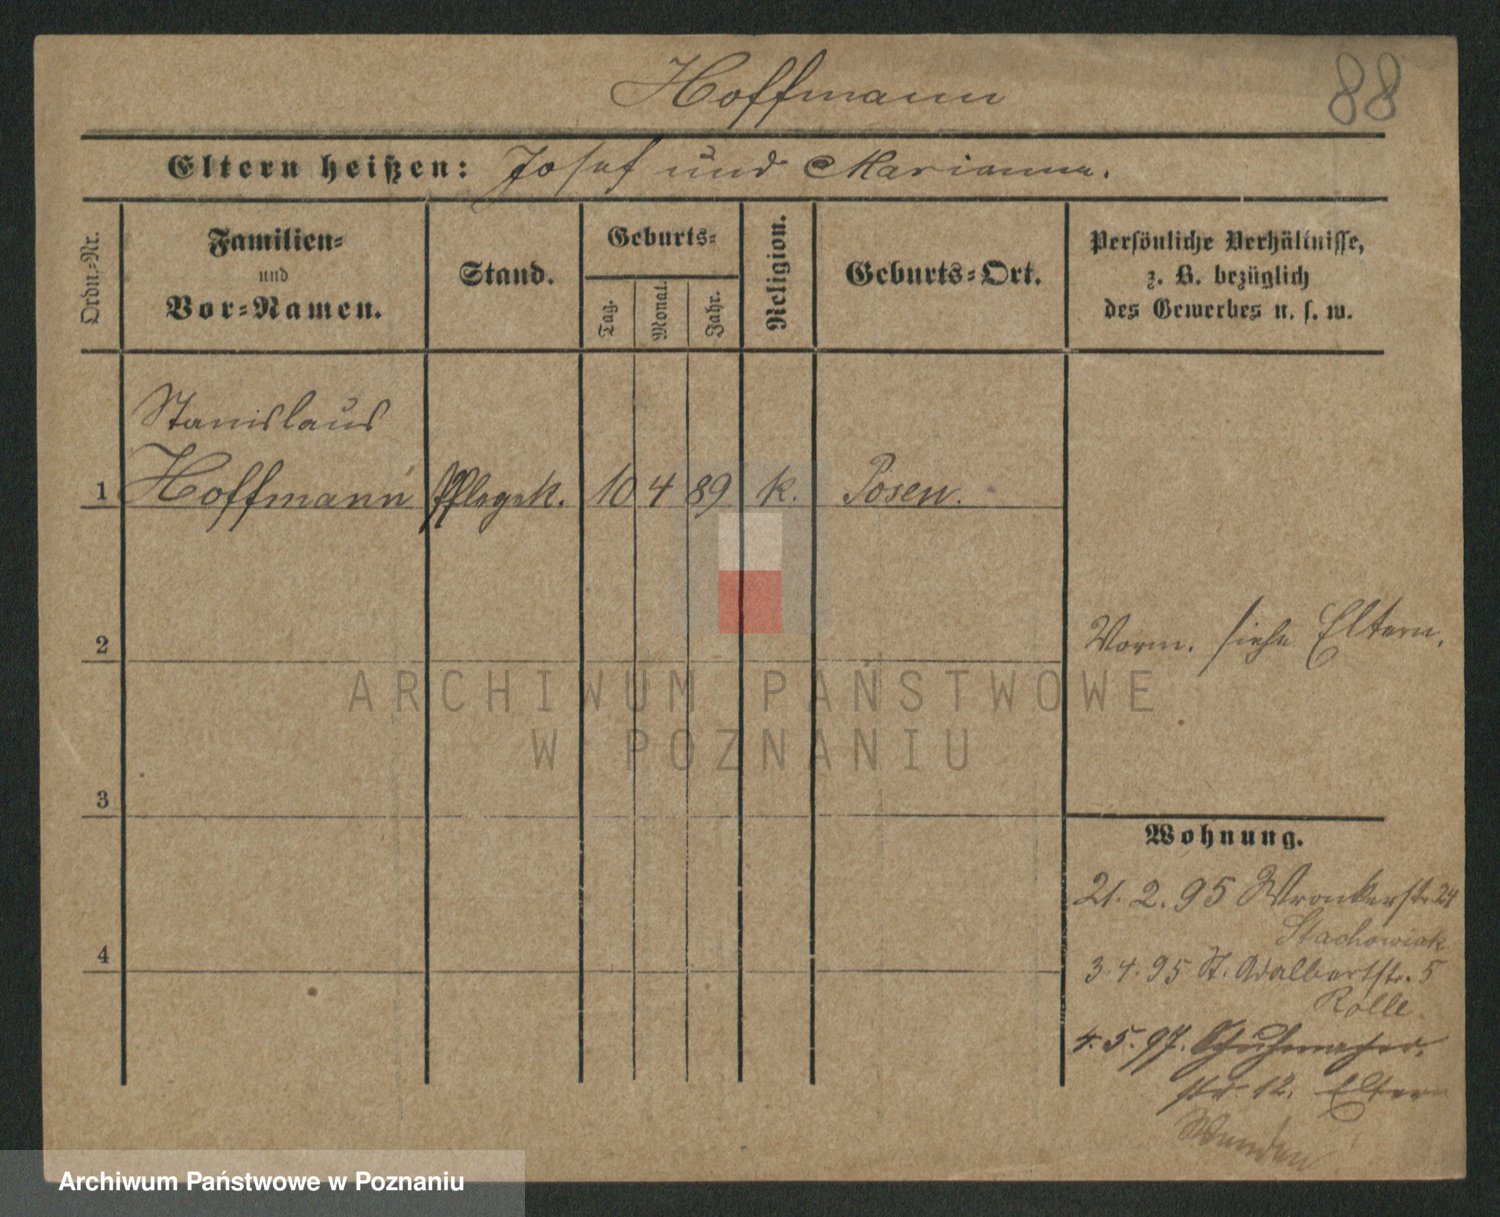 Hoffmann
88
Eltern heißen: Josef und Marianna.
Ordn.-Nr.
Familien-
und
Vor-Namen.
Stand.
Geburts-
Tag.
Monat.
Jahr.
Religion.
Geburts-Ort.
Persönliche Verhältnisse,
z. B. bezüglich
des Gewerbes u. s. w.
Stanislaus
1 Hoffmann Pflegek. 10 4 89 k. Posen.
2
Vorm. siehe Eltern.
3
Wohnung.
21. 2. 95 Wronkerstr. 24
Stachowiak
4
3. 4. 95 St. Adalbertstr. 5
Rolle.
4. 5. 97. Schuhmacher-
str. 12. Eltern
Wenden!
ARCHIWUM PAŃSTWOWE
W POZNANIU
Archiwum Państwowe w Poznaniu